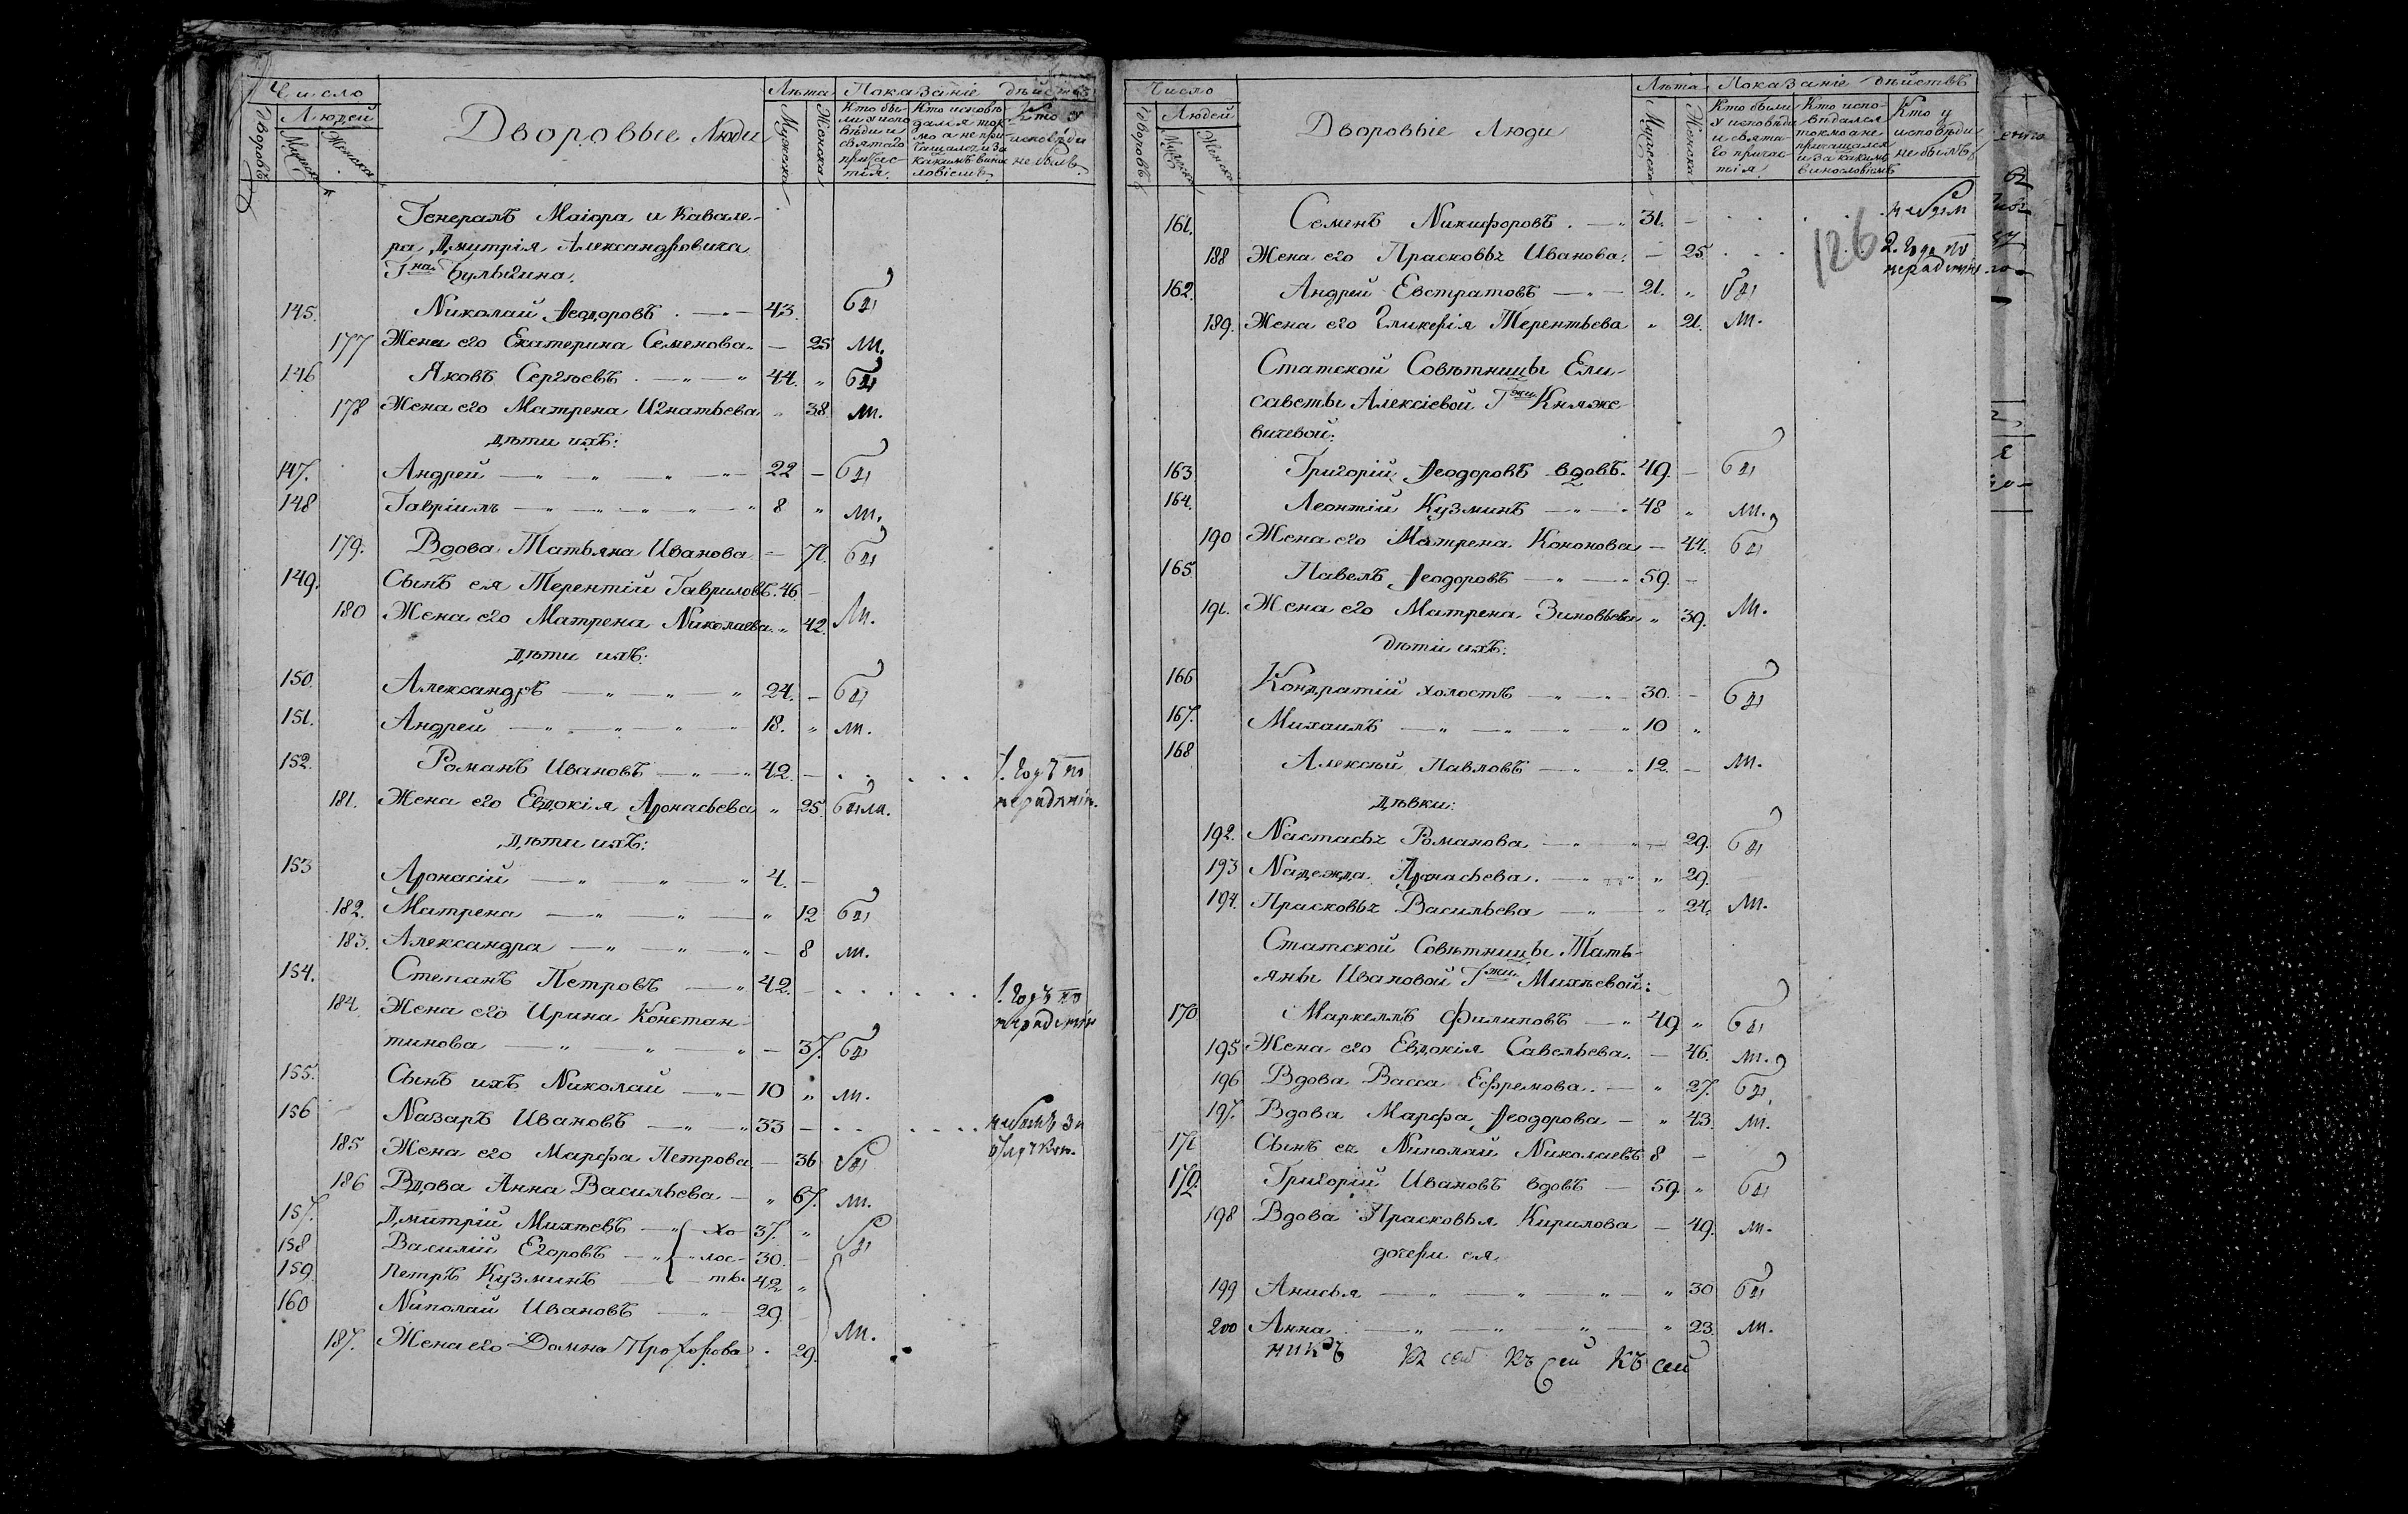 Число
Людей
Дворовъ
Мужеска
Женска
Дворовые Люди
Лѣта
Мужеска
Женска
Показаніе дѣйствъ
Кто бы-
ли у испо
вѣди и
святаго
причас-
тія.
Кто исповѣ
дался ток-
мо а не при-
чащался и за
какимъ вино
словіемъ
Кто у
исповѣди
не былъ.
Генералъ Маіора и Кавале-
ра Дмитрія Александровича
Гна Булыгина.
145. Николай Ѳеодоровъ 43. бы
177 Жена его Екатерина Семенова. 25 ли.
146 Яковъ Сергѣевъ 44. бы
178 Жена его Матрена Игнатьева 38 ли.
дѣти ихъ:
147. Андрей 22 бы
148 Гавріилъ 8 ли.
179. Вдова Татьяна Иванова 71. бы
149. Сынъ ея Терентій Гавриловъ. 46
180 Жена его Матрена Николаева 42. ли.
дѣти ихъ:
150 Александръ 24. бы
151. Андрей 18. ли.
152. Романъ Ивановъ 42. 1. годъ по
181. Жена его Евдокія Аѳонасьева 25. были. нерадѣнію.
дѣти ихъ:
153 Аѳонасій 4.
182. Матрена 12 бы
183. Александра 8 ли.
154. Степанъ Петровъ 42. 1. годъ по
184. Жена его Ирина Констан- нерадѣнію
тинова 37. бы
155. Сынъ ихъ Николай 10 ли.
156 Назаръ Ивановъ 33 небылъ за
185 Жена его Марфа Петрова 36 бы отлучкою.
186 Вдова Анна Васильева 67. ли.
157. Дмитрій Михѣевъ хо 37. бы
158 Василій Егоровъ лос- 30.
159. Петръ Кузминъ ты. 42
160 Николай Ивановъ 29.
187. Жена его Домна Прохорова 29. ли.
Число
Людей
Дворовъ
Мужеска
Женска
Дворовые Люди
Лѣта
Мужеска
Женска
Показаніе дѣйствъ
Кто были
у исповѣди
и свята-
го причас-
тія
Кто испо-
вѣдался
токмо а не
причащался
и за какимъ
винословіемъ
Кто у
исповѣди
не былъ
126
161. Семенъ Никифоровъ 31.
188 Жена его Прасковья Иванова. 25. 2. года по
162. Андрей Евстратовъ 21. бы
189. Жена его Гликерія Терентьева 21. ли.
Статской Совѣтницы Ели-
саветы Алексіевой Гжи Княже-
вичевой.
163 Григорій Ѳеодоровъ вдовъ. 49. бы
164. Леонтій Кузминъ 48 ли.
190 Жена его Матрена Кононова 44. бы
165 Павелъ Ѳеодоровъ 59.
191. Жена его Матрена Зиновьева 39. ли.
дѣти ихъ:
166 Кондратій холостъ 30. бы
167. Михаилъ 10
168 Алексѣй Павловъ 12. ли.
дѣвки:
192. Настасья Романова 29. бы
193 Надежда Аѳонасьева. 29.
194. Прасковья Васильева 24. ли.
Статской Совѣтницы Тать-
яны Ивановой Гжи Михѣевой:
170 Маркеллъ Филиповъ 49. бы
195 Жена его Евдокія Савельева. 46. ли.
196 Вдова Васса Ефремова. 27. бы
197. Вдова Марфа Ѳеодорова 43. ли.
171 Сынъ ея Николай Николаевъ 8
172 Григорій Ивановъ вдовъ 59. бы
198 Вдова Прасковья Кирилова 49. ли.
дочери ея
199 Анисья 30 бы
200 Анна 23. ли.
къ сей къ сей къ сей